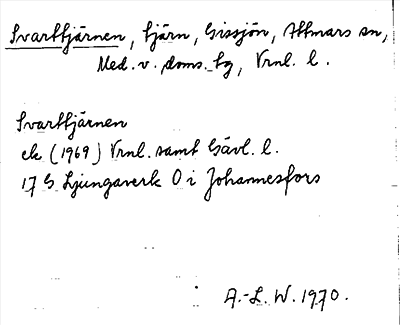 Svarttjärnen, tjärn, Gissjön, Attmars sn,
Med. v. doms. tg, Vrnl. l.
Svarttjärnen
ek (1969) Vrnl. samt Gävl. l.
17 G Ljungaverk O i Johannesfors
A.-L. W. 1970.